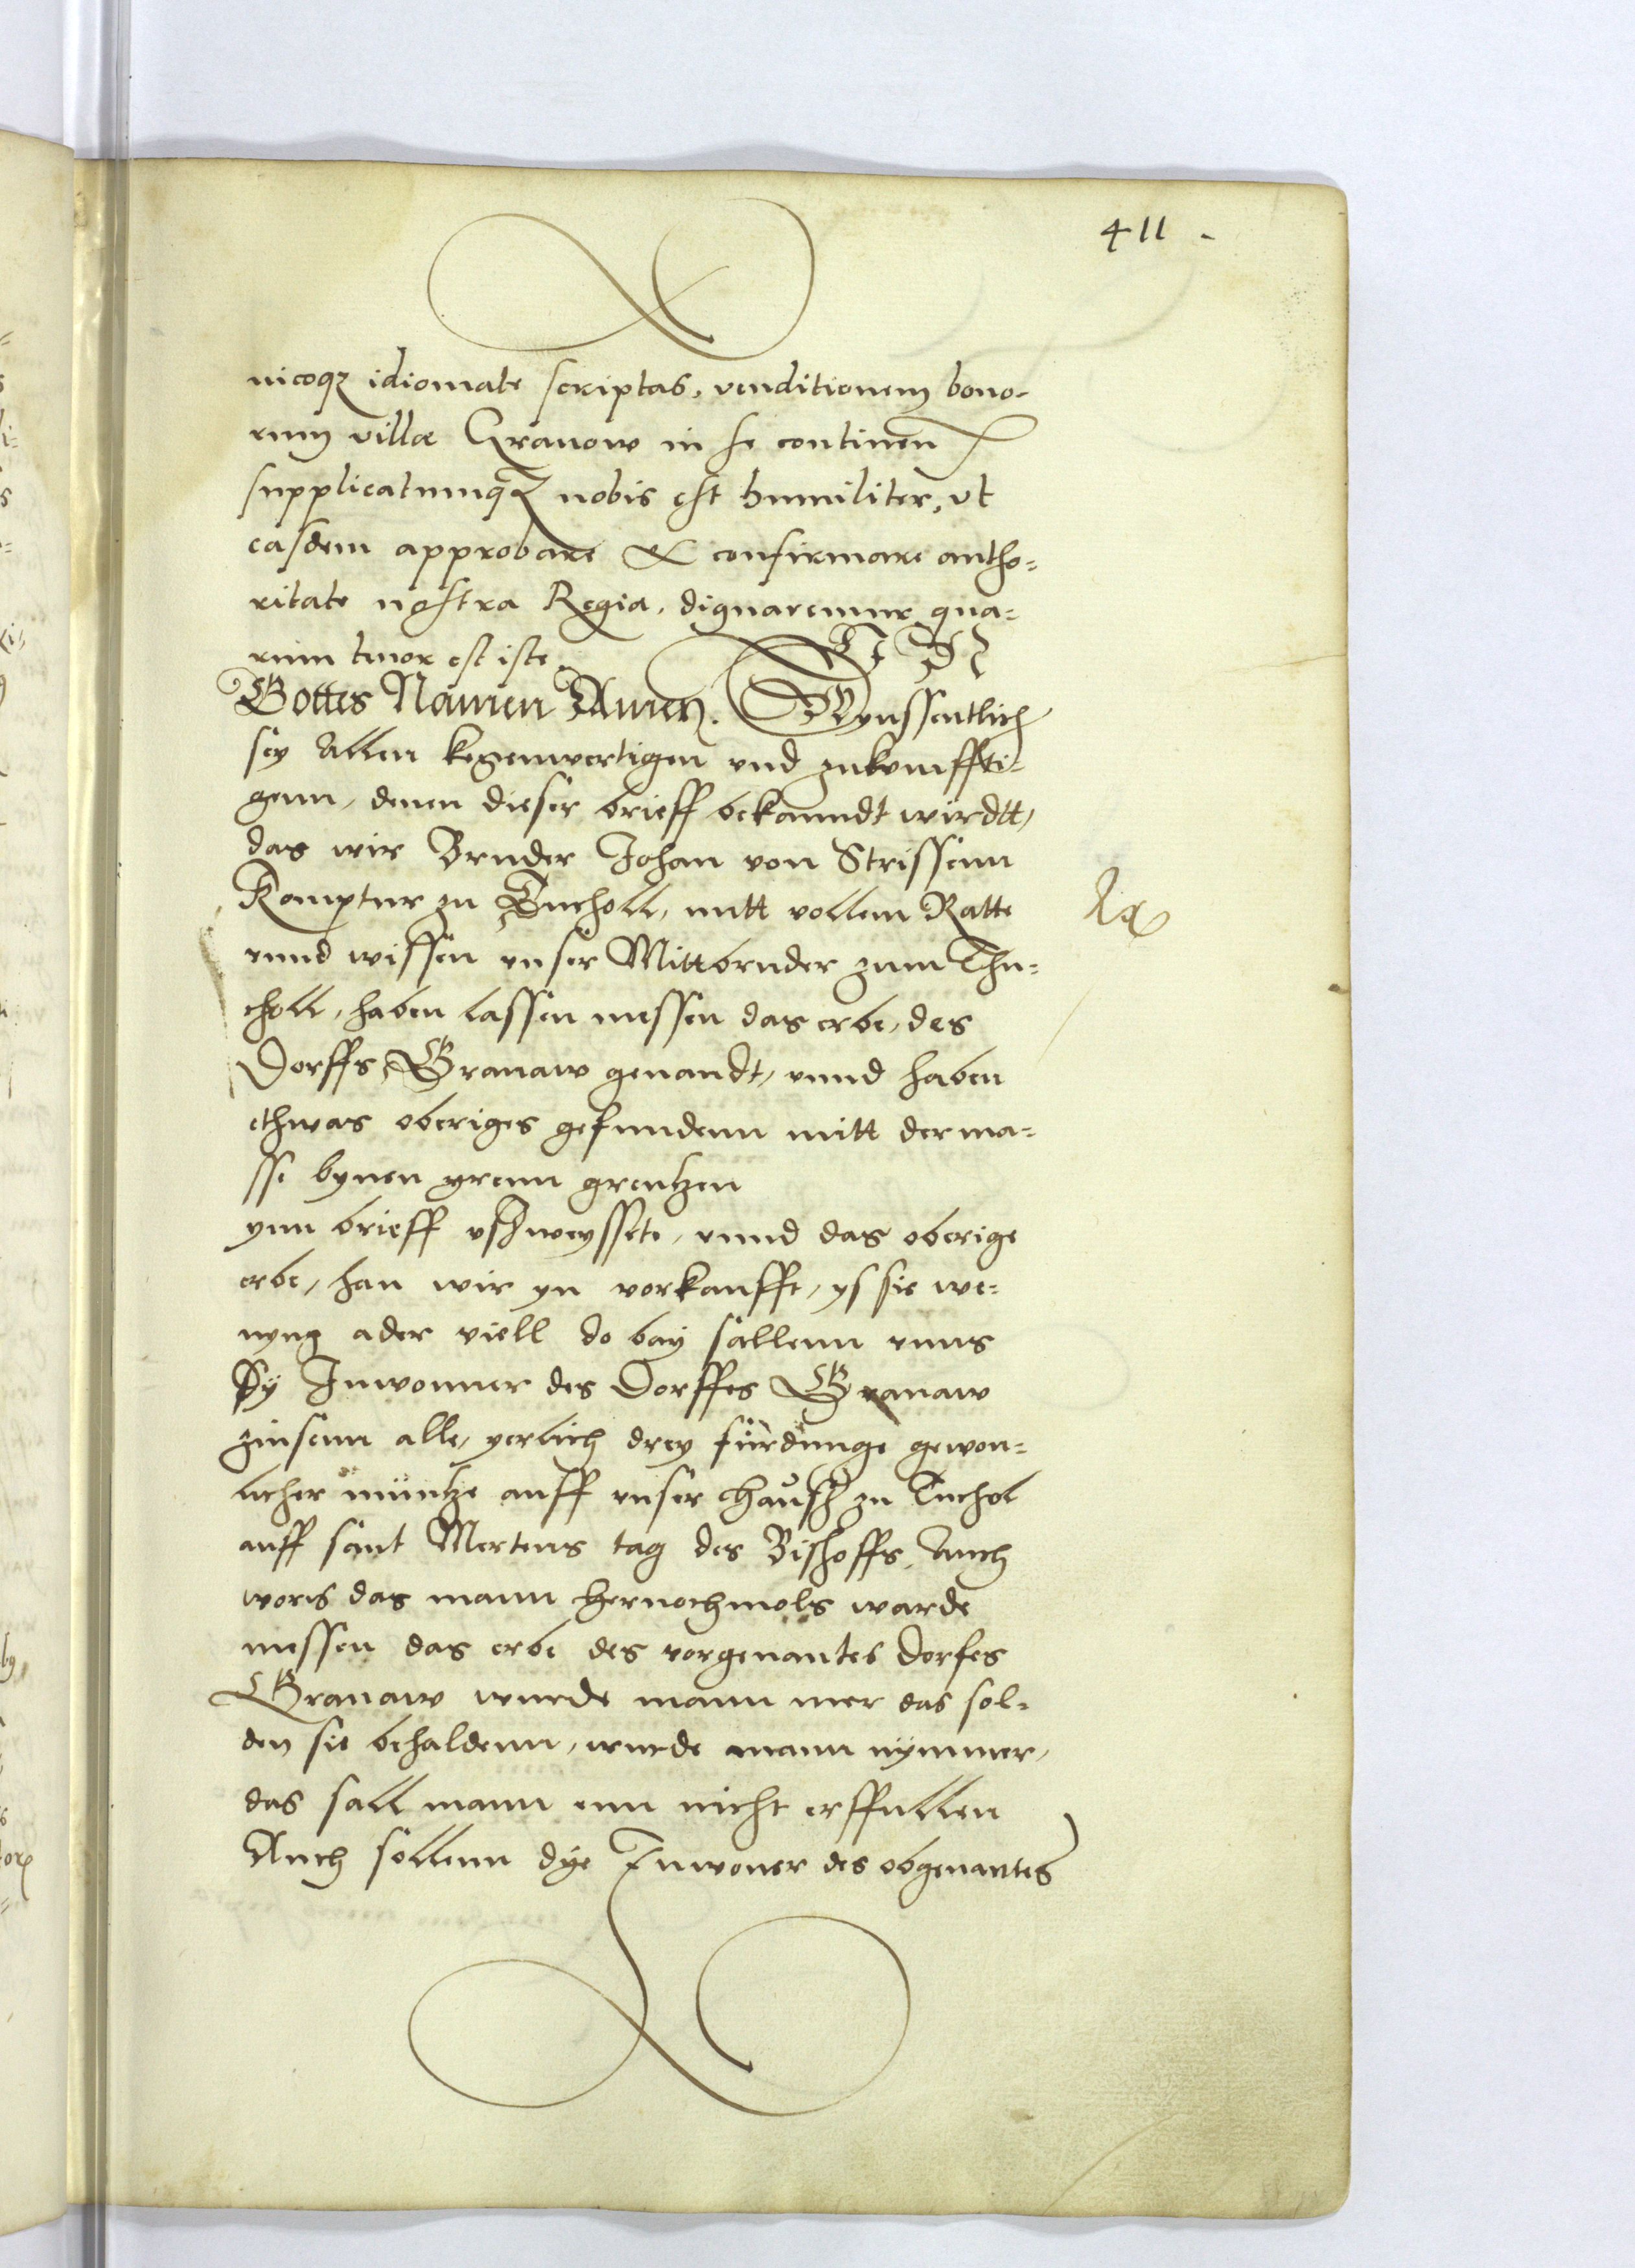 411
nicoq₃ idiomate scriptas, venditionem bono-
rum villæ Granow in se continen
supplicatumq₃ nobis est humiliter, vt
easdem approbare & confirmare autho=
ritate nostra Regia, dignaremur qua=
rum tenor est iste. IN
Gottes Namen Amen. Wyssentlich
sey Allen kegenwertigen vnd zukumffti=
genn, denen dieser brieff bekanndt wirdtt,
das wir Bruder Johan von Strissenn
Komptur zu Tucholl, mitt vollem Ratte
vnnd wissen vnser Mittbruder zum Thu=
choll, haben lassen messen das erbe, des
Dorffs Granaw genandt, vnnd haben
ethwas oberiges gefundenn mitt der ma=
sse bynen yrenn grentzen
ynn brieff vsweyssete, vnnd das oberige
erbe, han wir yn vorkaufft, ys sie we=
nyng ader viell do bay sallenn vnns
Dy Inwonner des Dorffes Granaw
zinsenn alle, yerlich drey fürdunge gewon=
licher müntze auff vnser Hausz zu Tuchol
auff sant Mertens tag des Bischoffs, Auch
wers das mann hernochmols warde
messen das erbe des vorgenantes dorfes
Granaw wurde mann mer das sol=
den sie behaldenn, wurde mann nymmer,
das sall mann enn nicht erffullen
Auch sollenn dye Inwoner des obgenantes